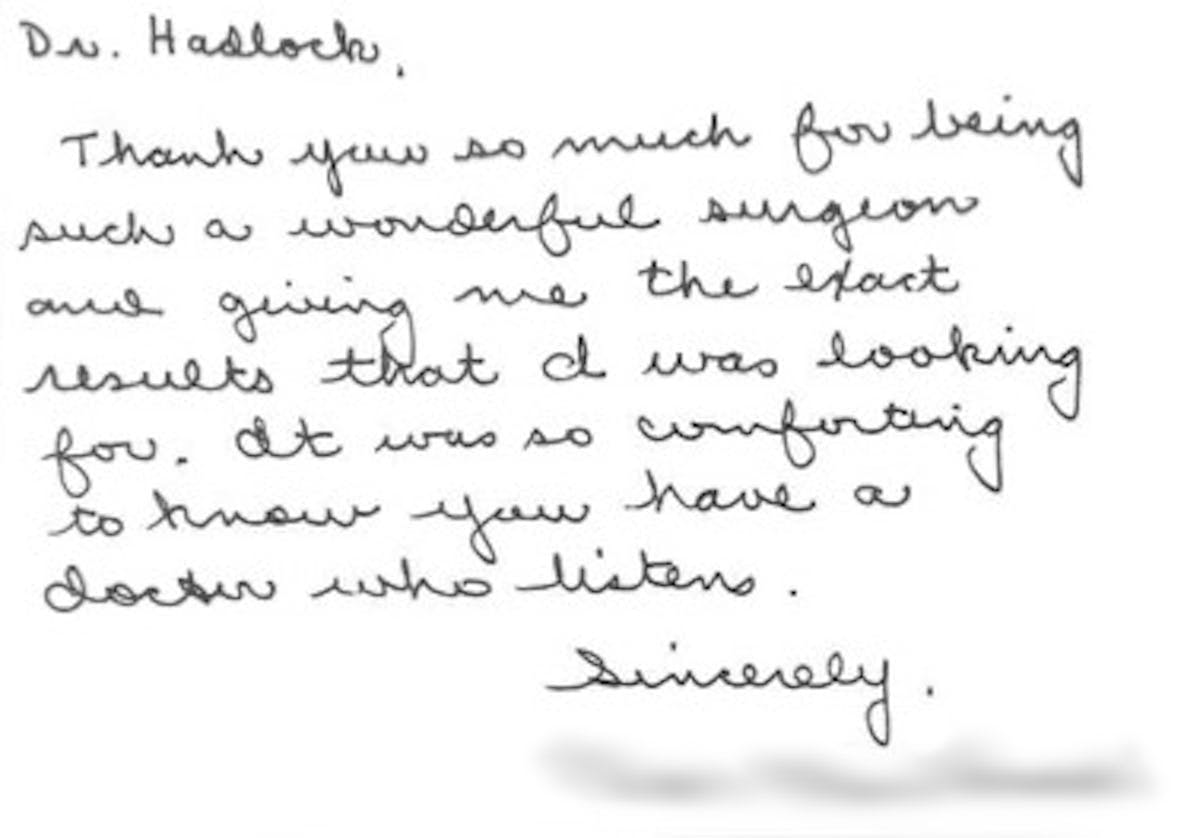 Dr. Hadlock,
Thank you so much for being
such a wonderful surgeon
and giving me the exact
results that I was looking
for. It was so comforting
to know you have a
doctor who listens.
Sincerely,